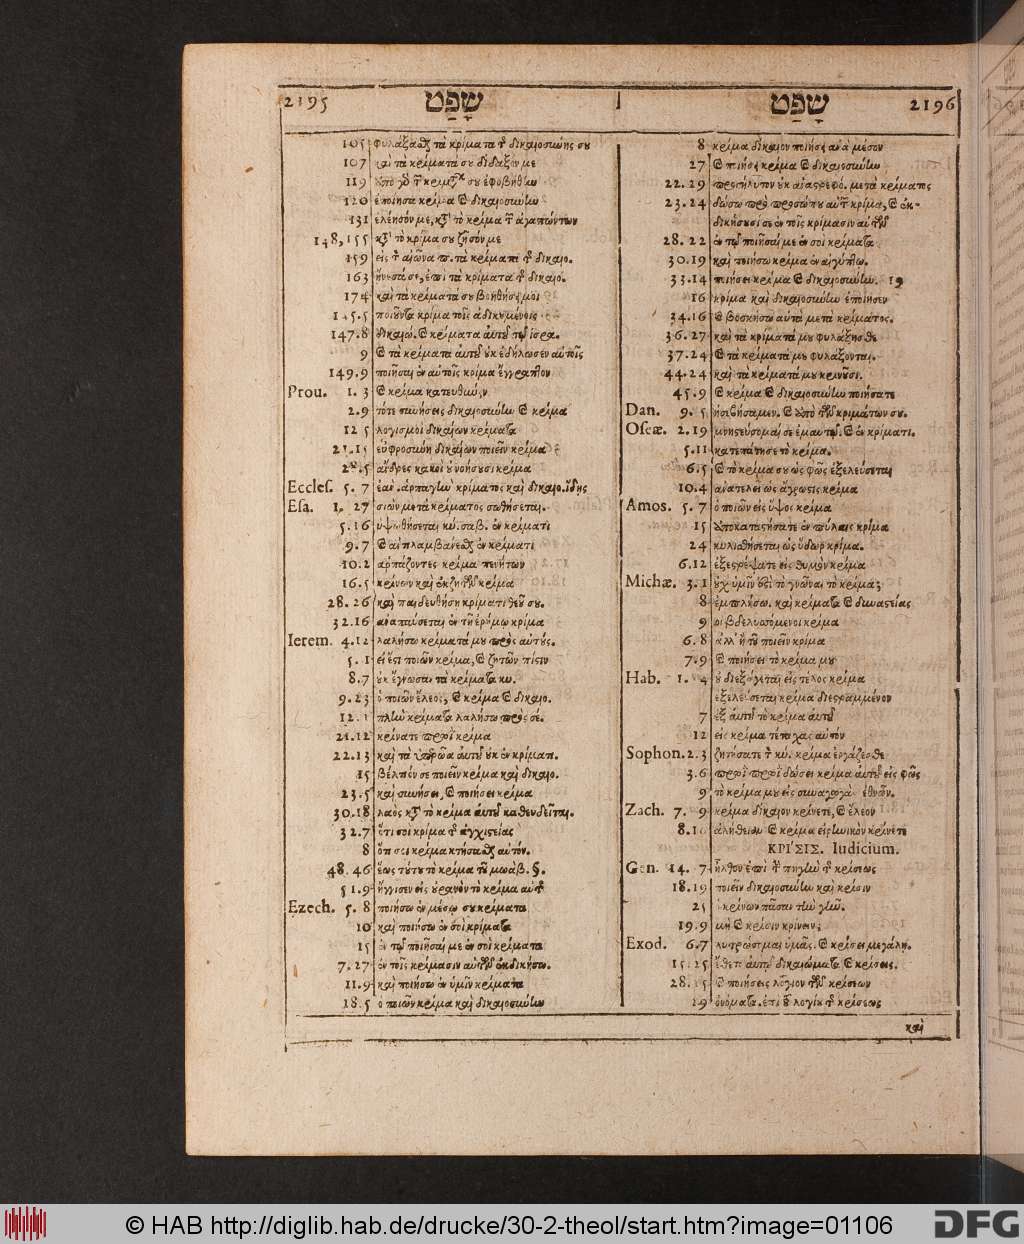 2195 שָׁפַט
105 φυλάξαϑς τὰ κρίματα τ͂ δικαιοσωύης συ
107 καὶ τὰ κρίματά συ δίδαξόν με
119 συ ἐφοβήθίω
120 ἐποίησα κρίμα ϗ δικαιοσωύίω
131 ἐλέησόν με, κτ͂ τὸ κρίμα τ͂ ἀγαπώντων
148,155 κτ͂ τὸ κρίμα συ ζῆσόν με
159 εἰς τ͂ αἰῶνα π. τὰ κρίματα τ͂ δικαιο.
163 ἐπὶ τὰ κρίματα τ͂ δικαιο.
174 καὶ τὰ κρίματά συ βοηθήσει μοι
ποιοῦντα κρίμα τοῖς ἀδικυμένοις
147.8 δικαιώ. ϗ κρίματα αὐτοῦ τῳ ἰσρα.
9 ϗ τὰ κρίματα αὐτοῦ υκ ἐδήλωσεν αὐτοῖς
149.9 ποιῆσαι ἐν αὐτοῖς κρίμα ἔγγραπτον
Prou. 1.3 ϗ κρίμα κατευθύνειν
2.9 τότε σωήσεις δικαιοσωύίω ϗ κρίμα
12 5 λογισμοὶ δικαίων κρίματα
21.15 εὐφροσωύη δικαίων ποιεῖν κρίμα
28.5 ἄνδρες κακοὶ υ νοήσυσι κρίμα
Eccles. 5.7 ἐὰν .ἁρπαγίω κρίματος καὶ δικαιο. ἴδης
Esa. 1. 27 σιὼν μετὰ κρίματος σωθήσεται.
5.16 ὑψωθήσεται κύ. σαβ. ἐν κρίματι
9.7 ϗ ἀντιλαμβάνεϑς ἐν κρίματι
10.2 ἁρπάζοντες κρίμα πενήτων
16.5 κρίνων καὶ ἐκζητῶν κρίμα
28.26 καὶ παιδευθήση κρίματι θεοῦ συ.
32.16 ἀναπαύσεται ἐν τῆ ἐρήμω κρίμα
Ierem. 4.12 λαλήσω κρίματά μυ πρὸς αὐτύς.
5.1 εἰ ἔστι ποιῶν κρίμα, ϗ ζητῶν πίστιν
8.7 υκ ἔγνωσαν τὰ κρίματα κυ.
9.23 ὁ ποιῶν ἔλεος, ϗ κρίμα ϗ δικαιο.
12.1 πλίω κρίματα λαλήσω πρός σέ.
21.12 κρίνατε πρωῒ κρίμα
22.13 καὶ τὰ ὑπερῶα αὐτοῦ υκ ἐν κρίματι.
15 βέλτιόν σε ποιεῖν κρίμα καὶ δικαιο.
23.5 καὶ σωήσει, ϗ ποιήσει κρίμα
30.18 λαὸς κτ͂ τὸ κρίμα αὐτοῦ καθευδεῖται.
32.7 ὅτι σοὶ κρίμα τ͂ ἀγχιστείας
8 ὅτι σοὶ κρίμα κτήσαϑς αὐτόν.
48.46 ἕως τύτυ τὸ κρίμα τοῦ μωάβ. §.
51.9 ἤγγισεν εἰς υρανὸν τὸ κρίμα αὐτ͂
Ezech. 5.8 ποιήσω ἐν μέσῳ συ κρίματα
10 καὶ ποιήσω ἐν σοὶ κρίματα
15 ἐν τῳ ποιῆσαί με ἐν σοὶ κρίματα
7.27 ἐν τοῖς κρίμασιν αὐτῶν ἐκδικήσω.
11.9 καὶ ποιήσω ἐν ὑμῖν κρίματα
18.5 ὁ ποιῶν κρίμα καὶ δικαιοσωύίω
שָׁפַט 2196
8 κρίμα δίκαιον ποιήσει ἀνὰ μέσον
27 ϗ ποιήσει κρίμα ϗ δικαιοσωύίω
22.29 προσήλυτον υκ ἀναστρεφό. μετὰ κρίματος
23.24 δώσω πρὸ προσώπυ αὐτ͂ κρίμα, ϗ ἐκ-
δικήσυσί σε ἐν τοῖς κρίμασιν αὐτῶν
28.22 ἐν τῳ ποιῆσαί με ἐν σοὶ κρίματα
30.19 καὶ ποιήσω κρίμα ἐν αἰγύπτω.
33.14 ποιήσει κρίμα ϗ δικαιοσωύίω. 19
16 κρίμα καὶ δικαιοσωύίω ἐποίησεν
34.16 ϗ βοσκήσω αὐτὰ μετὰ κρίματος.
36.27 καὶ τὰ κρίματά μυ φυλάξησθε
37.24 ϗ τὰ κρίματά μυ φυλάξονται.
44.24 καὶ τὰ κρίματά μυ κρινοῦσι.
45.9 ϗ κρίμα ϗ δικαιοσωύίω ποιήσατε
Dan. 9.5 ἠσεβήσαμεν. ϗ ἀπὸ τῶν κριμάτων συ.
Oseæ. 2.19 μνηστεύσομαί σε ἐμαυτῳ. ϗ ἐν κρίματι.
5.11 κατεπάτησε τὸ κρίμα.
6.5 ϗ τὸ κρίμα συ ὡς φῶς ἐξελεύσεται
10.4 ἀνατελεῖ ὡς ἄγρωστις κρίμα
Amos. 5.7 ὁ ποιῶν εἰς ὕψος κρίμα
15 ἀποκαταστήσατε ἐν πύλαις κρίμα
24 κυλισθήσεται ὡς ὕδωρ κρίμα.
6.12 ἐξεστρέψατε εἰς θυμὸν κρίμα
Michæ. 3.1 υχ ὑμῖν ὅστι τὸ γνῶναι τὸ κρίμα;
8 ἐμπλήσω. καὶ κρίματα ϗ δυναστείας
9 οἱ βδελυσσόμενοι κρίμα
6.8 ἀλλ' ἢ τοῦ ποιεῖν κρίμα
7.9 ϗ ποιήσει τὸ κρίμα μυ
Hab. 1. 4 υ διεξάγεται εἰς τέλος κρίμα
ἐξελεύσεται κρίμα διεστραμμένον
7 ἐξ αὐτοῦ τὸ κρίμα αὐτοῦ
12 εἰς κρίμα τέταχας αὐτόν
Sophon. 2.3 ζητήσατε τ͂ κύ. κρίμα ἐργάζεσθε
3.6 πρωῒ πρωῒ δώσει κρίμα αὐτοῦ εἰς φῶς
9 τὸ κρίμα μυ εἰς σωαγωγὰς ἐθνῶν.
Zach. 7. 9 κρίμα δίκαιον κρίνετε, ϗ ἔλεον
8.16 ἀλήθειαν ϗ κρίμα εἰρίωικὸν κρίνετε
ΚΡΙ'ΣΙΣ. Iudicium.
Gen. 14. 7 ἦλθον ἐπὶ τ͂ πηγίω τ͂ κρίσεως
18.19 ποιεῖν δικαιοσωύίω καὶ κρίσιν
25 ὁ κρίνων πᾶσαν τίω γίω.
19.9 μὴ ϗ κρίσιν κρίνειν;
Exod. 6.7 λυτρώσομαι ὑμᾶς. ϗ κρίσει μεγάλη.
15.25 ἔθετο αὐτῳ δικαιώματα ϗ κρίσεις.
28.15 ϗ ποιήσεις λόγιον τῶν κρίσεων
29 ὀνόματα. ἐπὶ τοῦ λογίυ τ͂ κρίσεως
καὶ
© HAB http://diglib.hab.de/drucke/30-2-theol/start.htm?image=01106
DFG